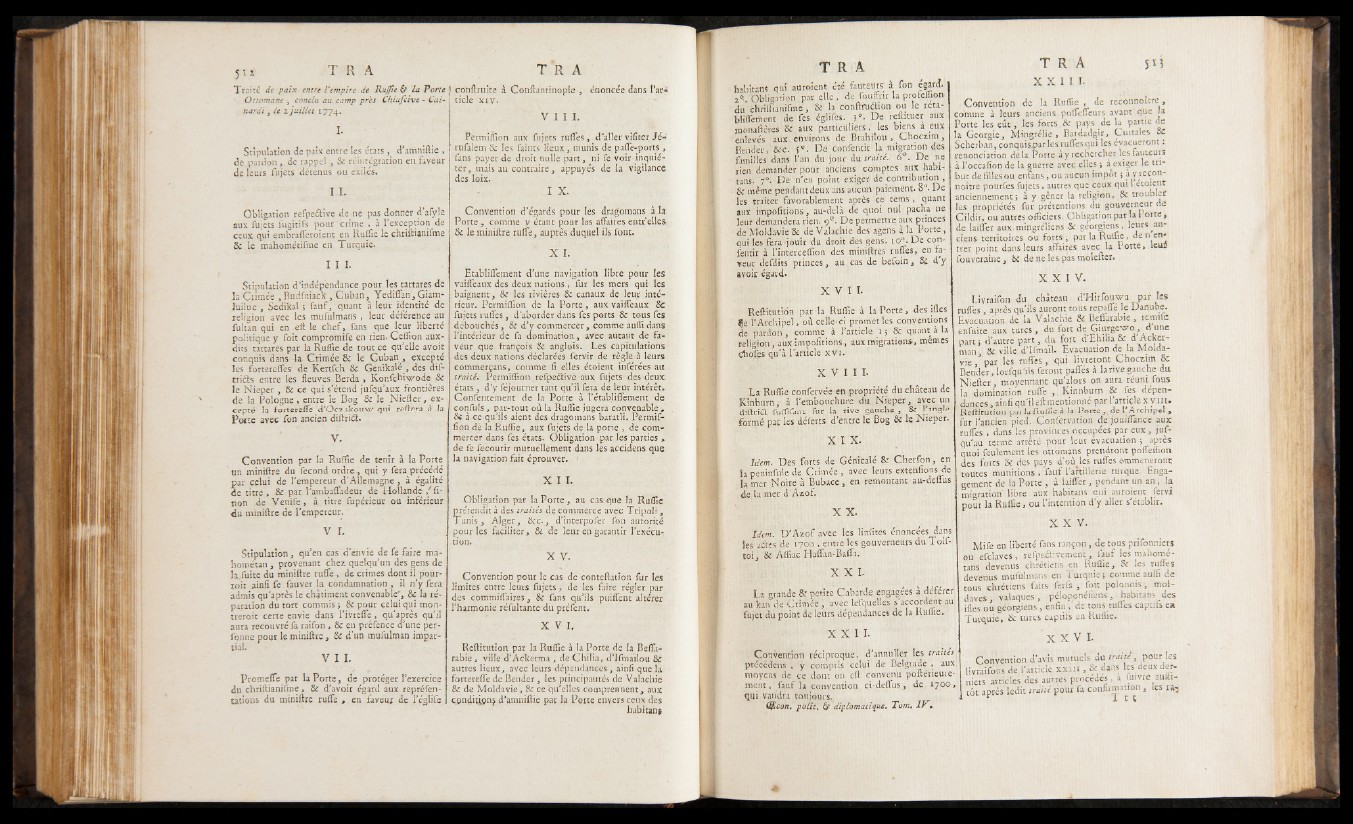 512 T R A
Traité de paix entre l'empire de Russie & la Porte
Ottomane, conclu au camp près Chiusciive-Cai-
nardi, le 2 juillet 1774.
I.
Stipulation de paix entre les états, d'amnistie,
de pardon, de rappel, & réintégration en faveur
de leurs sujets détenus ou exilés.
I I.
Obligation respective de ne pas donner d'asyle
aux sujets fugitifs pour crime, à l'exception de
ceux qui embrasseroient en Russie le christianisme
& le mahométisme en Turquie.
I I I.
Stipulation d'indépendance pour les tartares de
la Crimée, Budsiack, Cuban, Yedissan, Giam-
builuc, Sedikal; sauf, quant à leur identité de
religion avec les musulmans, leur déférence au
sultan qui en est le chef, sans que leur liberté
politique y soit compromise en rien. Cession aux-
dits tartares par la Russie de tout ce qu'elle avoit
conquis dans la Crimée & le Cuban, excepté
les forteresses de Kertsch & Genikalé, des dis-
tricts entre les fleuves Berda, Konschiwode &
le Nieper, & ce qui s'étend jusqu'aux frontières
de la Pologne, entre le Bog & le Niester, ex-
cepté la forteresse d'Oczakouw qui restera à la
Porte avec son ancien district.
V.
Convention par la Russie de tenir à la Porte
un ministre du second ordre, qui y sera précédé
par celui de l'empereur d'Allemagne, à égalité
de titre, & par l'ambassadeur de Hollande, si-
non de Venise, à titre supérieur ou inférieur
du ministre de l'empereur.
V I.
Stipulation, qu'en cas d'envie de se faire ma-
hométan, provenant chez quelqu'un des gens de
la suite du ministre russe, de crimes dont il pour-
roit ainsi se sauver la condamnation, il n'y sera
admis qu'après le châtiment convenable, & la ré-
paration du tort commis; & pour celui qui mon-
treroit cette envie dans l'ivresse, qu'après qu'il
aura recouvré sa raison, & en présence d'une per-
sonne pour le ministre, & d'un musulman impar-
tial.
V I I.
Promesse par la Porte, de protéger l'exercice
du christianisme, & d'avoir égard aux représen-
tations du ministre russe, en faveur de l'église
T R A
construite à Constantinople, énoncée dans l'ar-
ticle XIV.
V I I I.
Permission aux sujets russes, d'aller visiter Jé-
rusalem & les saints lieux, munis de passe-ports,
sans payer de droit nulle part, ni se voir inquié-
ter, mais au contraire, appuyés de la vigilance
des loix.
I X.
Convention d'égards pour les dragomans à la
Porte, comme y étant pour les affaires entr'elles
& le ministre russe, auprès duquel ils sont.
X I.
Etablissement d'une navigation libre pour les
vaisseaux des deux nations, sur les mers qui les
baignent, & les rivières & canaux de leur inté-
rieur. Permission de la Porte, aux vaisseaux &
sujets russes, d'aborder dans ses ports & tous ses
débouchés, & d'y commercer, comme aussi dans
l'intérieur de sa domination, avec autant de fa-
veur que françois & anglois. Les capitulations
des deux nations déclarées servir de règle à leurs
commerçans, comme si elles étoient insérées au
traité. Permission respective aux sujets des deux
états, d'y séjourner tant qu'il sera de leur intérêt.
Consentement de la Porte à l'établissement de
consuls, par-tout où la Russie jugera convenable,
& à ce qu'ils aient des dragomans baratli. Permis-
sion de la Russie, aux sujets de la porte, de com-
mercer dans ses états. Obligation par les parties,
de se secourir mutuellement dans les accidens que
la navigation fait éprouver.
X I I.
Obligation par la Porte, au cas que la Russie
prétendît à des traités de commerce avec Tripoli,
Tunis, Alger, &c., d'interposer son autorité
pour les faciliter, & de leur en garantir l'exécu-
tion.
X V.
Convention pour le cas de contestation sur les
limites entre leurs sujets, de les faire régler par
des commissaires, & sans qu'ils puissent altérer
l'harmonie résultante du présent.
X V I.
Restitution par la Russie à la Porte de la Bessa-
rabie, ville d'Ackerma, de Chilia, d'Ismailou &
autres lieux, avec leurs dépendances, ainsi que la
forteresse de Bender, les principautés de Valachie
& de Moldavie, & ce qu'elles comprennent, aux
conditions d'amnistie par la Porte envers ceux des
habitans
T R A
habitans qui auroient été fauteurs à son égard.
2°. Obligation par elle, de souffrir la profession
du christianisme, & la construction ou le réta-
blissement de ses églises. 3°. De restituer aux
monastères & aux particuliers, les biens à eux
enlevés aux environs de Brahilou, Choczim,
Bender, &c. 5°. De consentir la migration des
familles dans l'an du jour du traité. 6°. De ne
rien demander pour anciens comptes aux habi-
tans. 7°. De n'en point exiger de contribution,
& même pendant deux ans aucun paiement. 8°. De
les traiter favorablement après ce tems, quant
aux impositions, au-delà de quoi nul pacha ne
leur demandera rien. 9°. De permettre aux princes
de Moldavie & de Valachie des agens à la Porte,
qui les fera jouir du droit des gens. 10°. De con-
sentir à l'intercession des ministres russes, en fa-
veur desdits princes, au cas de besoin, & d'y
avoir égard.
X V I I.
Restitution par la Russie à la Porte, des isles
de l'Archipel, où celle-ci promet les conventions
de pardon, comme à l'article 1; & quant à la
religion, aux impositions, aux migrations, mêmes
choses qu'à l'article XVI.
X V I I I.
La Russie conservée en propriété du château de
Kinburn, à l'embouchure du Nieper, avec un
district suffisant sur la rive gauche, & l'angle
formé par les déserts d'entre le Bog & le Nieper.
X I X.
Idem. Des forts de Génicalé & Cherson, en
la peninsule de Crimée, avec leurs extensions de
la mer Noire à Bubace, en remontant au-dessus
de la mer d'Azof.
X X.
Idem. D'Azof avec les limites énoncées dans
les actes de 1700, entre les gouverneurs du Tols-
toi, & Assiac Hassan-Bassa.
X X I.
La grande & petite Cabarde engagées à déférer
au kan de Crimée, avec lesquelles s'accordent au
sujet du point de leurs dépendances de la Russie.
X X I I.
Convention réciproque, d'annuller les traités
précédens, y compris celui de Belgrade, aux
moyens de ce dont on est convenu postérieure-
ment, sauf la convention ci-dessus, de 1700,
qui vaudra toujours.
Œcon. polit. & diplomatique. Tom. IV.
T R A 513
X X I I I.
Convention de la Russie, de reconnoître,
comme à leurs anciens possesseurs avant que la
Porte les eût, les forts & pays de la partie de
la Georgie, Mingrélie, Bardadgir, Cuitales &
Scherban, conquis par les russes qui les évacueront:
renonciation de la Porte à y rechercher les fauteurs
à l'occasion de la guerre avec elles; à exiger le tri-
but de filles ou enfans, ou aucun impôt; à y recon-
noître pour ses sujets, autres que ceux qui l'étoient
anciennement; à y gêner la religion, & troubler
les propriétés sur prétentions du gouverneur de
Cildir, ou autres officiers. Obligation par la Porte,
de laisser aux mingréliens & géorgiens, leurs an-
ciens territoires ou forts, par la Russie, de n'en-
trer point dans leurs affaires avec la Porte, leur
souveraine, & de ne les pas molester.
X X I V.
Livraison du château d'Hirsouwa par les
russes, après qu'ils auront tous repassé le Danube.
Evacuation de la Valachie & Bessarabie, remise
ensuite aux turcs, du fort de Giurgewo, d'une
part; d'autre part, du fort d'Ehilia & d'Acker-
man, & ville d'Ismail. Evacuation de la Molda-
vie, par les russes, qui livreront Choczim &
Bender, lorsqu'ils seront passés à la rive gauche du
Niester, moyennant qu'alors on aura réuni sous
la domination russe, Kinnburn & ses dépen-
dances, ainsi qu'il est mentionné par l'article XVIII.
Restitution par la Russie à la Porte, de l'Archipel,
sur l'ancien pied. Conservation de jouissance aux
russes, dans les provinces occupées par eux, jus-
qu'au terme arrêté pour leur évacuation; après
quoi seulement les ottomans prendront possession
des forts & des pays d'où les russes emmeneront
toutes munitions, sauf l'artillerie turque. Enga-
gement de la Porte, à laisser, pendant un an, la
migration libre aux habitans qui auroient servi
pour la Russie, ou l'intention d'y aller s'établir.
X X V.
Mise en liberté sans rançon, de tous prisonniers
ou esclaves, respectivement, sauf les mahomé-
tans devenus chrétiens en Russie, & les russes
devenus musulmans en Turquie; comme aussi de
tous chrétiens faits serfs, soit polonois, mol-
daves, valaques, péloponésiens, habitans des
isles ou géorgiens, enfin, de tous russes captifs en
Turquie, & turcs captifs en Russie.
X X V I.
Convention d'avis mutuels du traité, pour les
livraisons de l'article XXIII, & dans les deux der-
niers articles des autres procédés, à suivre aussi-
tôt après ledit traité pour sa confirmation, les ra-
T t t